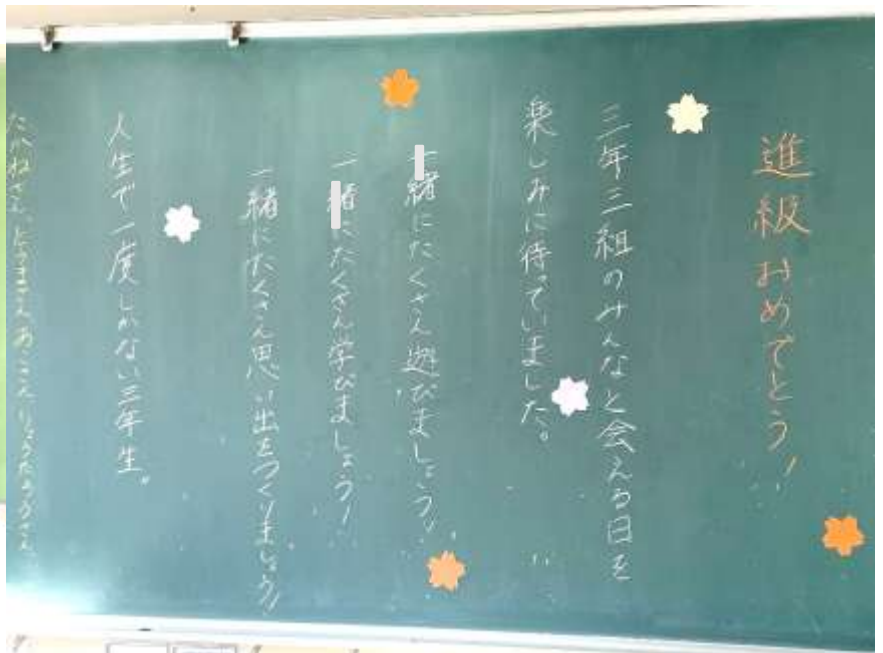 進級おめでとう!
三年三組のみんなと会える日を
楽しみに待っていました。
一緒にたくさん遊びましょう!
一緒にたくさん学びましょう!
一緒にたくさん思い出をつくりましょう!
人生で一度しかない三年生。